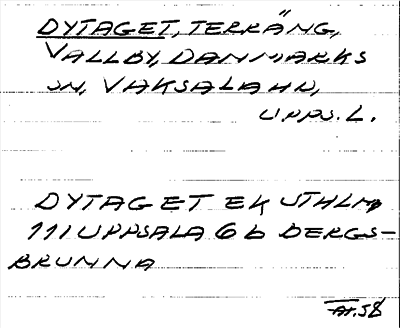 DYTAGET, TERRÄNG,
VALLBY, DANMARKS
SN, VAKSALA HD,
UPPS. L.
DYTAGET EK STHLM
111 UPPSALA 6 b BERGS-
BRUNNA